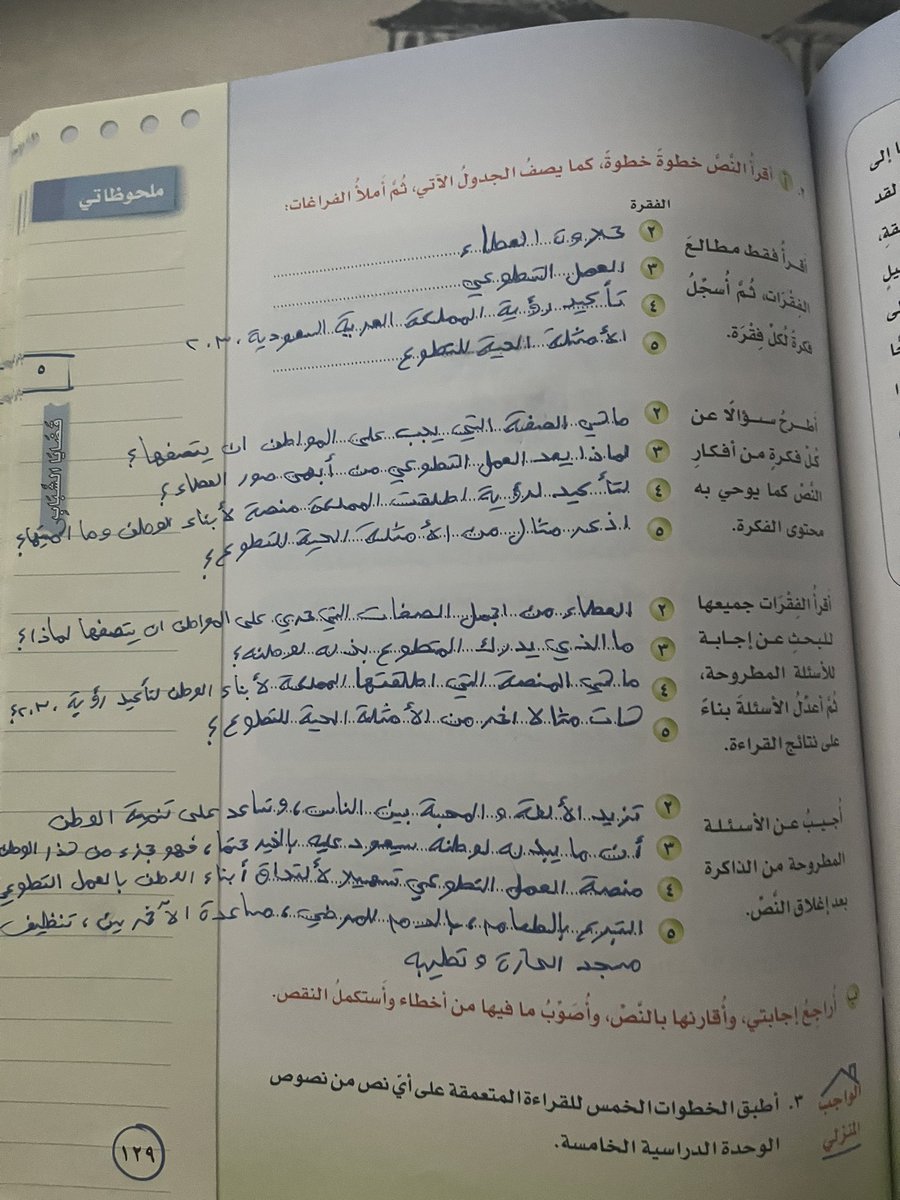 ملحوظاتي
٥
قضايا الشباب
٢. أ أقرأُ النَّصَّ خطوةً خطوةً، كما يصفُ الجدولُ الآتي، ثُمَّ أملأُ الفراغات:
الفقرة
أقرأُ فقط مطالعَ الفقْرَات، ثُمَّ أُسجِّلُ فكرةً لكلِّ فِقْرَة.
٢ حلاوة العطاء
٣ العمل التطوعي
٤ تأكيد رؤية المملكة العربية السعودية ٢٠٣٠
٥ الأمثلة الحية للتطوع
أطرحُ سؤالًا عن كُلِّ فكرةٍ من أفكارِ النَّصِّ كما يوحي به محتوى الفكرة.
٢ ماهي الصفة التي يجب على المواطن ان يتصفها؟
٣ لماذا يعد العمل التطوعي من أبهى صور العطاء؟
٤ لتأكيد لرؤية اطلقت المملكة منصة لأبناء الوطن وما اهميتها؟
٥ اذكر مثال من الأمثلة الحية للتطوع؟
أقرأُ الفِقْرَات جميعها للبحثِ عن إجابة للأسئلة المطروحة، ثُمَّ أعدِّلُ الأسئلةَ بناءً على نتائج القراءة.
٢ العطاء من اجمل الصفات التي حري على المواطن ان يتصفها لماذا؟
٣ ما الذي يدرك المتطوع بذله لوطنه؟
٤ ماهي المنصة التي اطلقتها المملكة لأبناء الوطن لتأكيد رؤية ٢٠٣٠؟
٥ هات مثالا اخر من الأمثلة الحية للتطوع؟
أُجيبُ عن الأسئلة المطروحة من الذاكرة بعد إغلاق النَّصِّ.
٢ تزيد الألفة و المحبة بين الناس، وتساعد على تنمية الوطن
٣ أن ما يبذله لوطنه سيعود عليه بالخير حتما، فهو جزء من هذا الوطن
٤ منصة العمل التطوعي تسهيلا لألتحاق أبناء الوطن بالعمل التطوعي
٥ التبرع بالطعام، بالدم للمرضى، مساعدة الآخرين، تنظيف
مسجد الحارة و تطيبه
ب أُراجعُ إجابتي، وأُقارنها بالنَّصِّ، وأُصَوِّبُ ما فيها من أخطاء وأَستكملُ النقص.
الواجب المنزلي
٣. أطبق الخطوات الخمس للقراءة المتعمقة على أيِّ نص من نصوص
الوحدة الدراسية الخامسة.
١٢٩